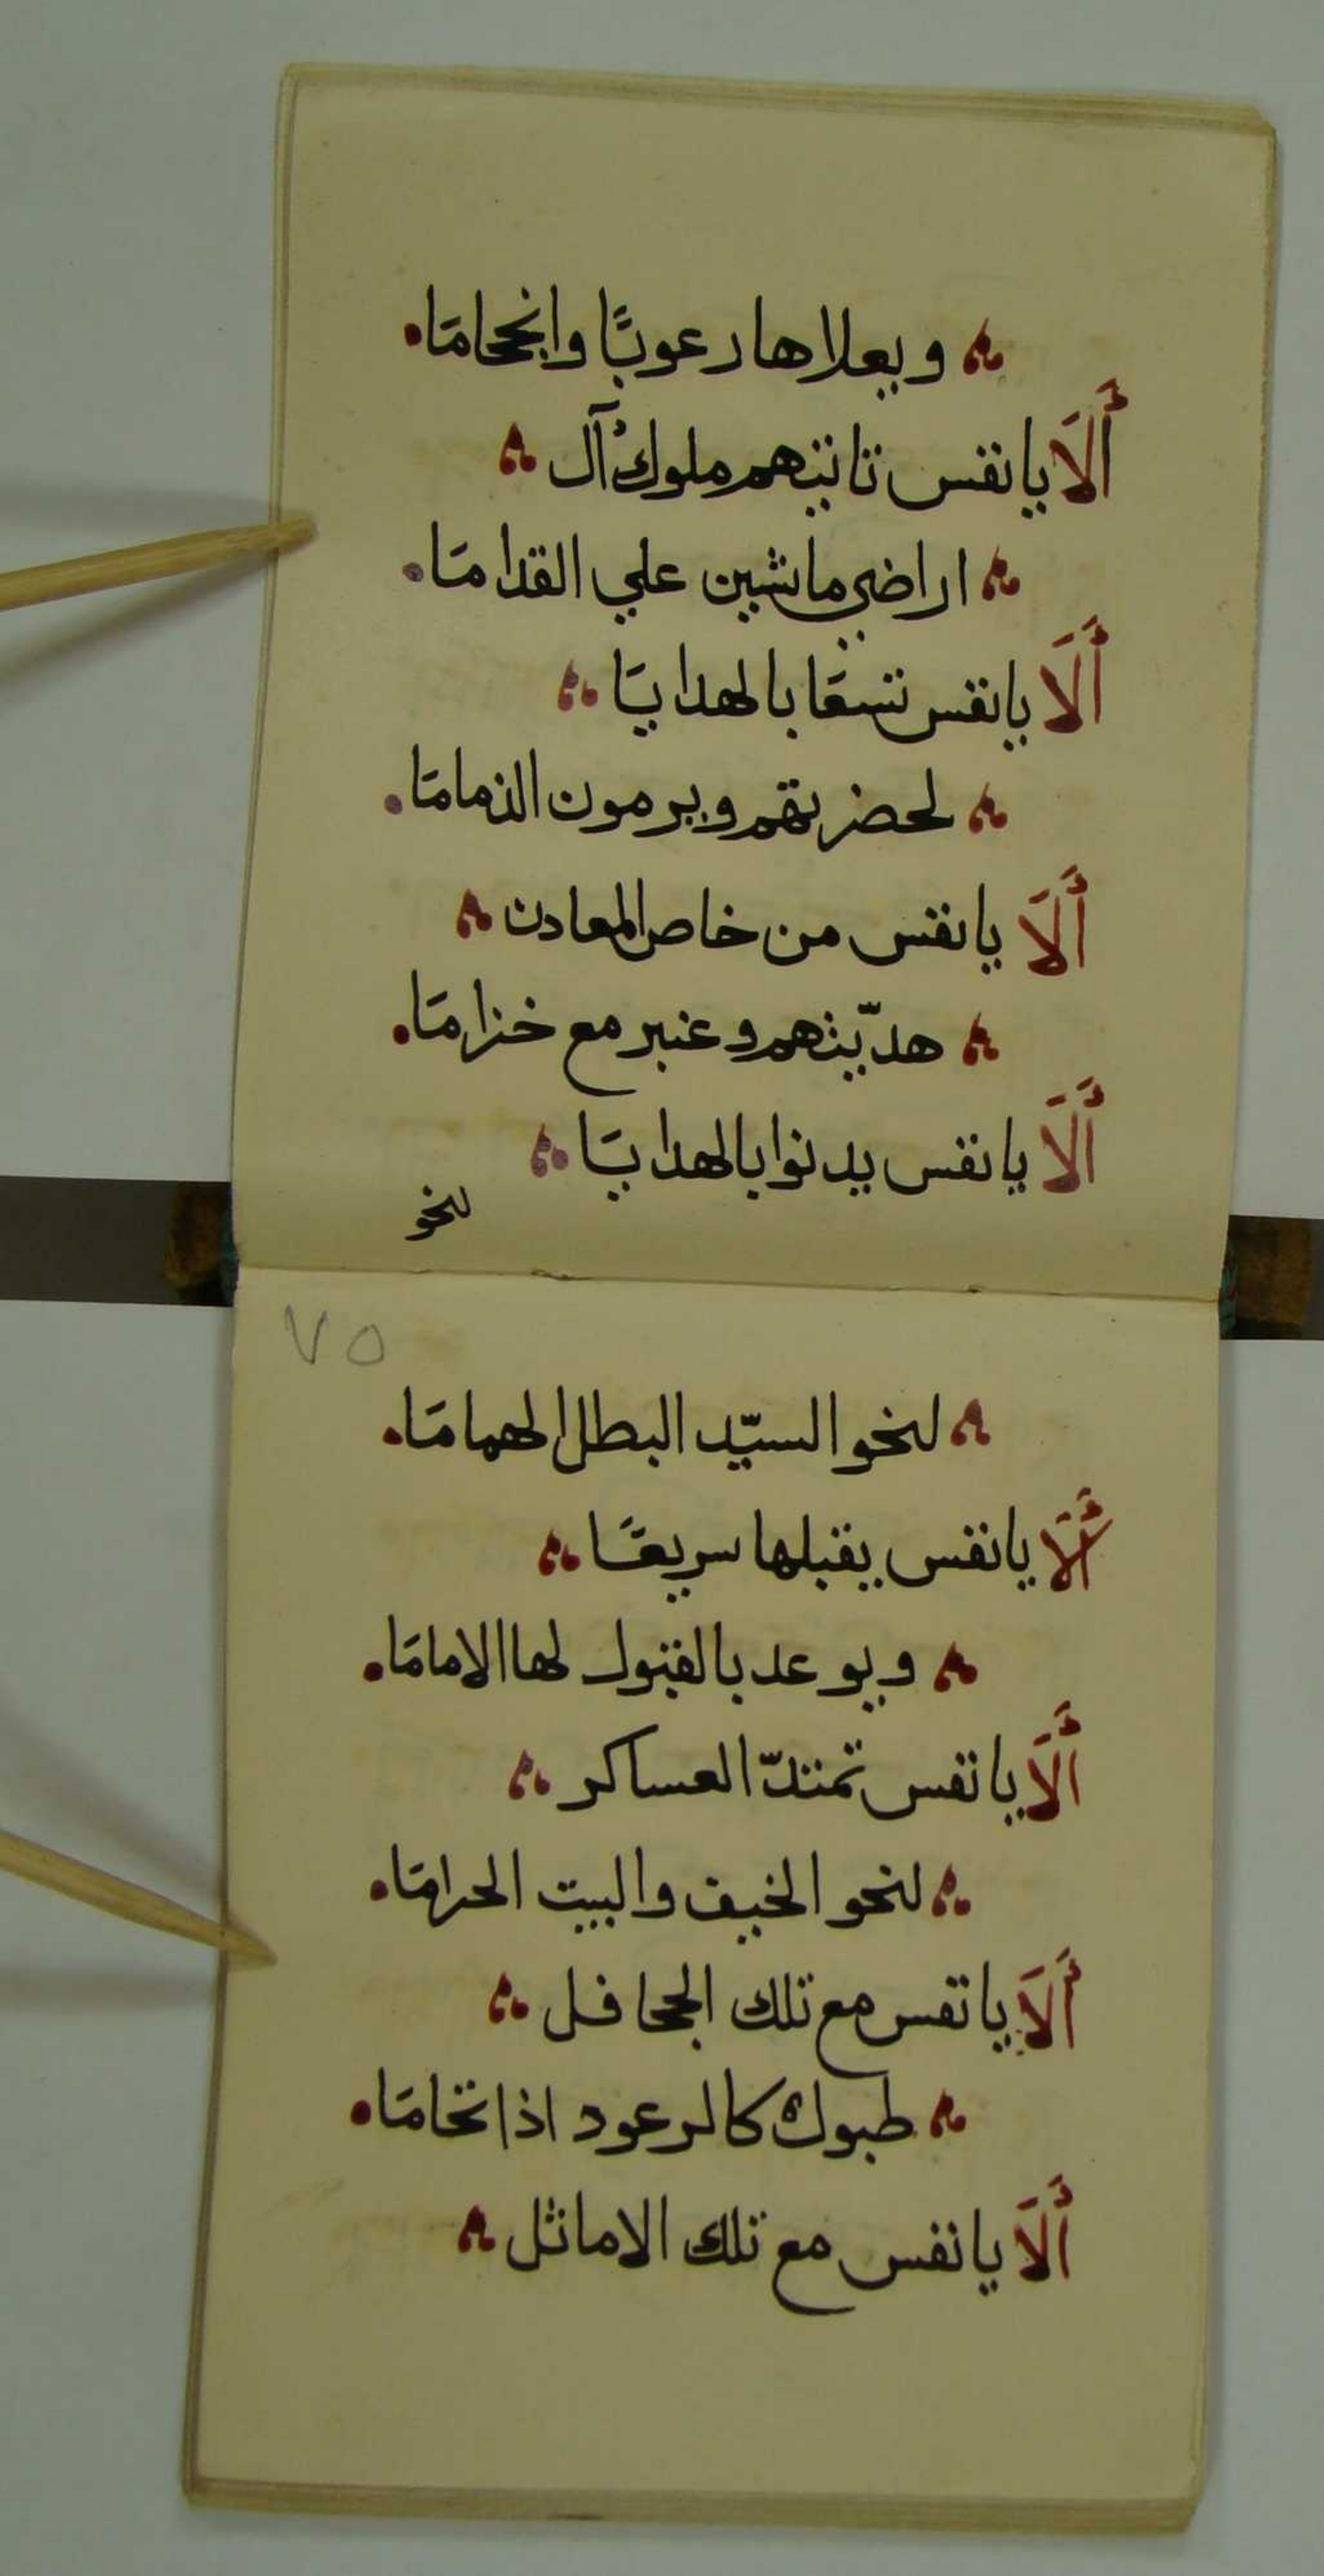 ويعلاها رعوبًا وانجحامَا
أَلَا يا نفس تاتيهم ملوك آل
اراضي ماشين علي القدامَا
أَلَا يا نفس تسعَا بالهدايَا
لحضرتهم ويرمون الذمامَا
أَلَا يا نفس من خاص المعادن
هديّتهم وعنبر مع خزامَا
أَلَا يا نفس يدنوا بالهدايَا
لنحو
٧٥
لنحو السيّد البطل الهمامَا
أَلَا يا نفس يقبلها سريعًا
ويوعد بالقبول لها الامامَا
أَلَا يا نفس تمتدّ العساكر
لنحو الخيف والبيت الحرامَا
أَلَا يا نفس مع تلك الجحافل
طبول كالرعود اذا تحامَا
أَلَا يا نفس مع تلك الاماثل